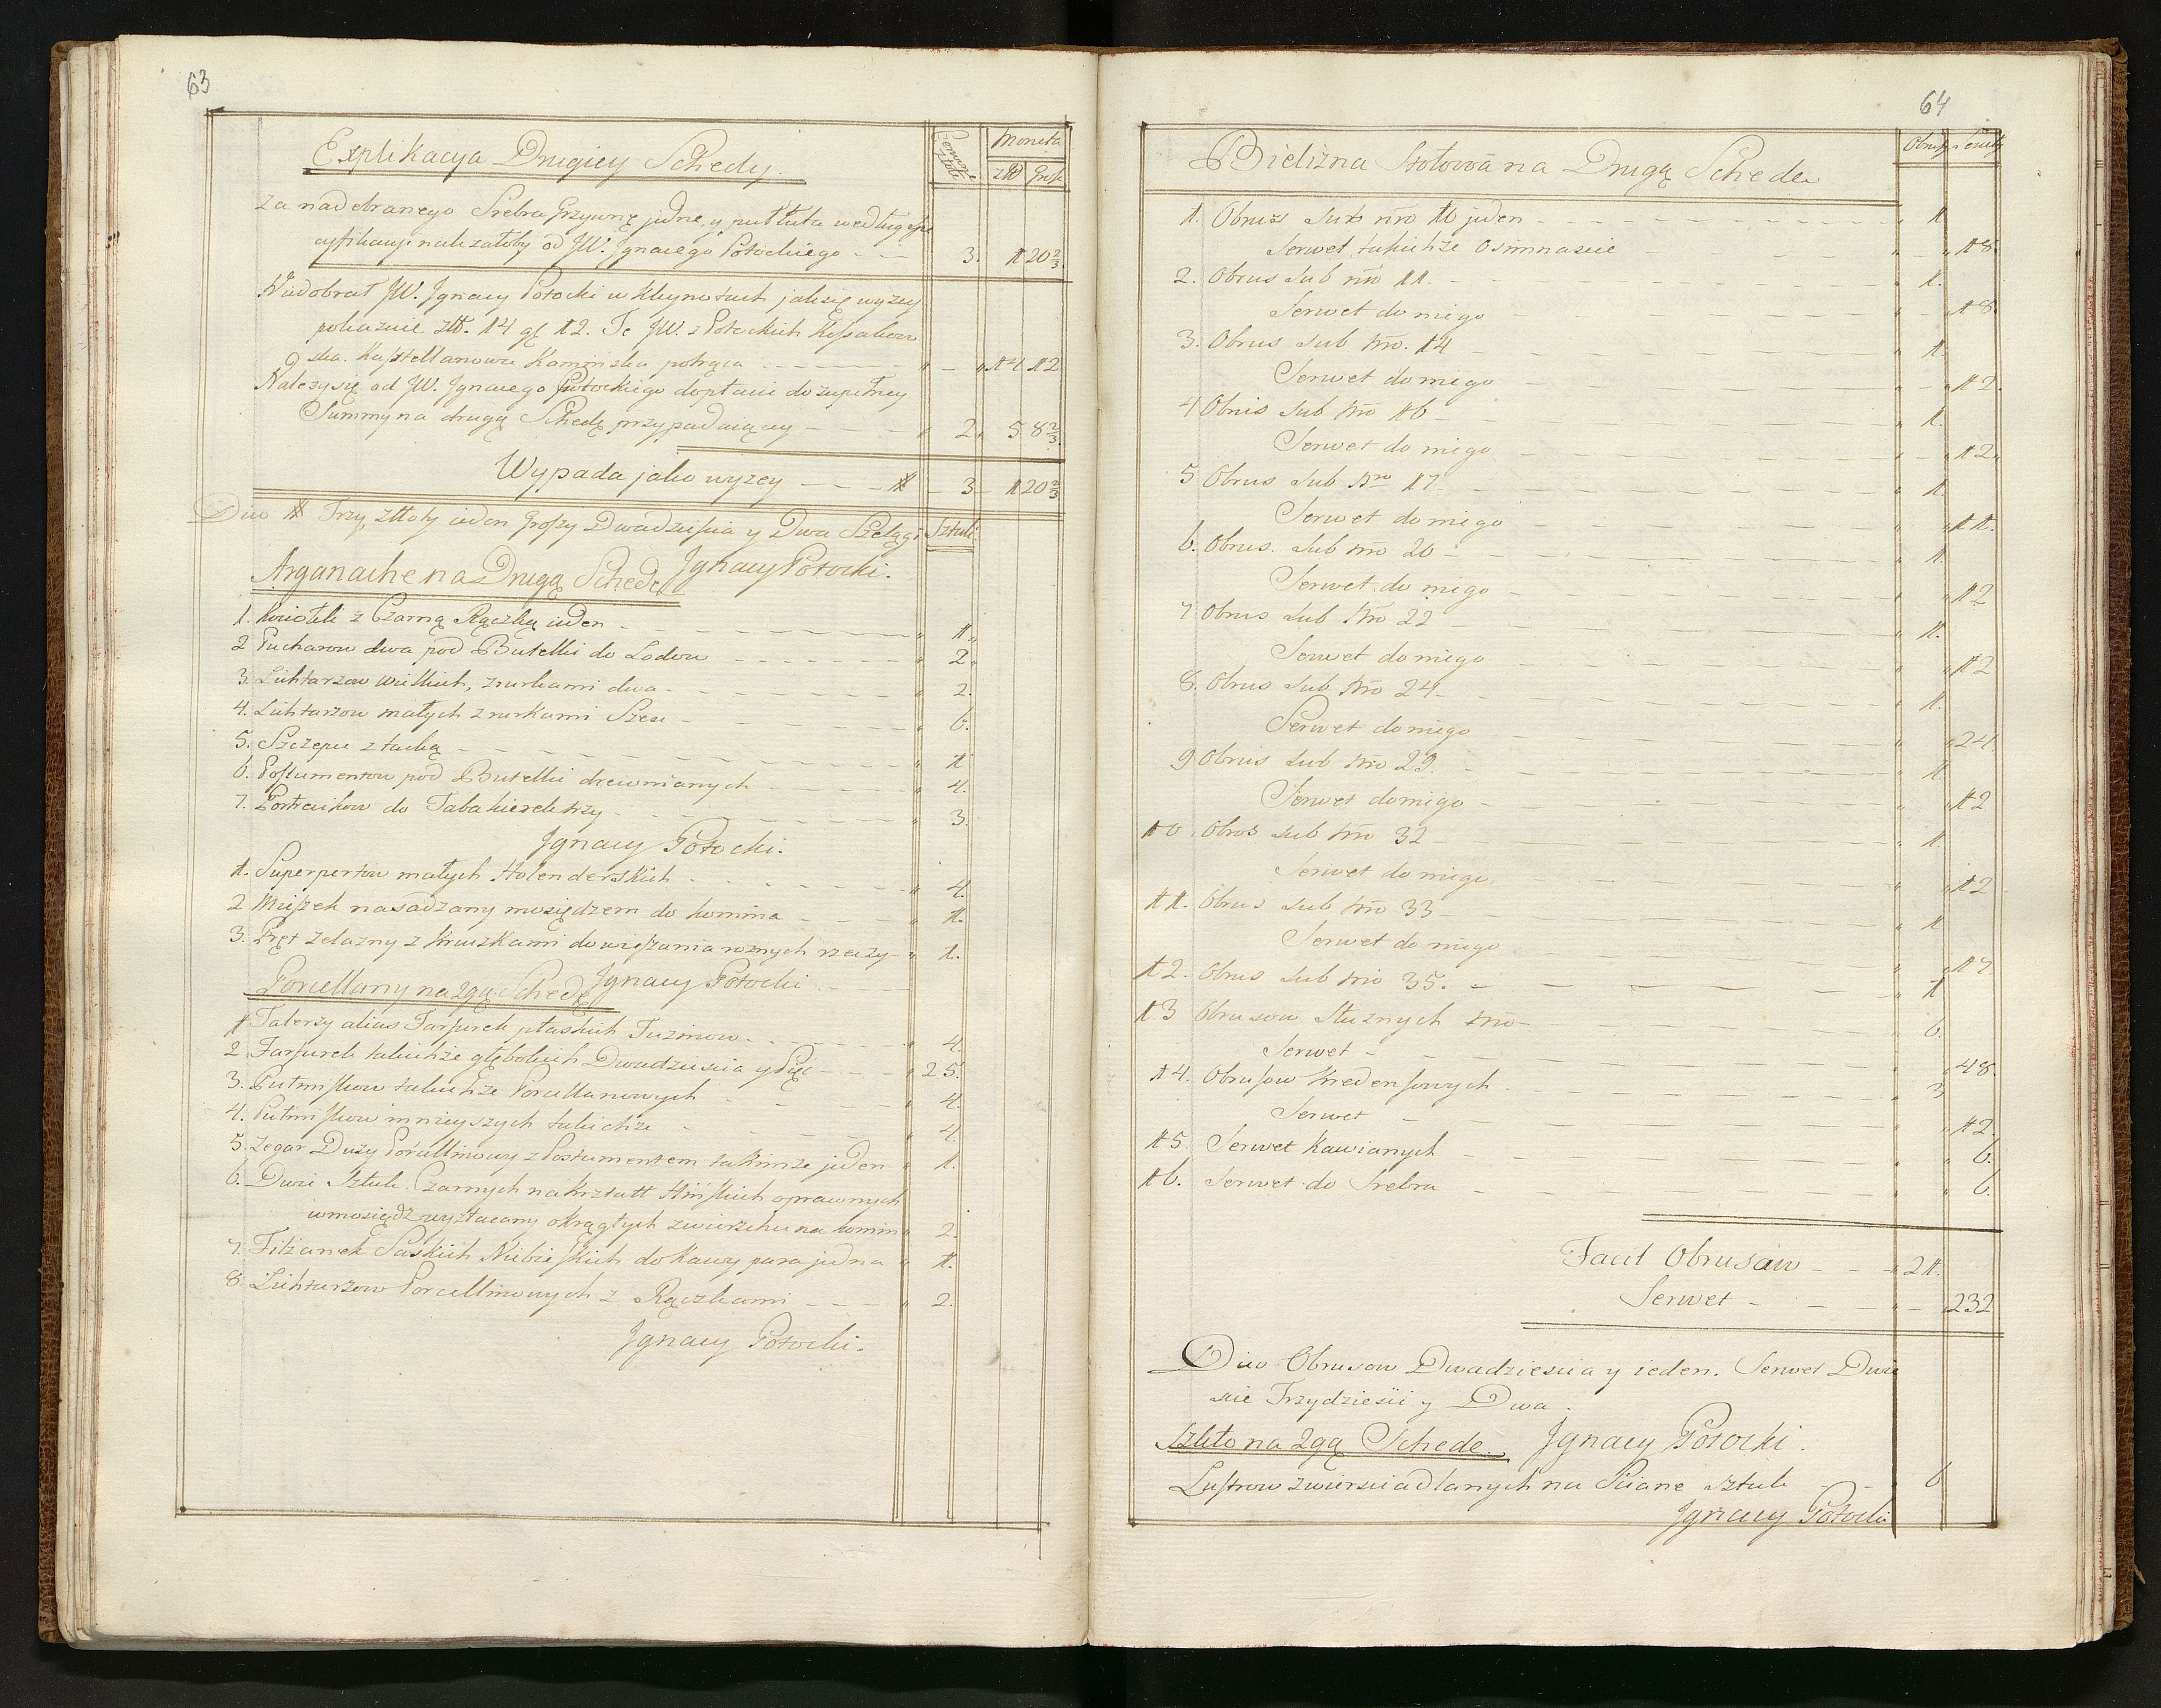 63
Explikacya Drugiey Schedy.
Czerwone złote
Moneta
złł Grosz
Za nadebranego Srebra Grzywnę jedne, y puł łuta według spe
cyfikacyi należałoby od JW. Jgnacego Potockiego - - 3. 1 20 2/3
Niedobrał JW. Jgnacy Potocki w Kleynotach jak się wyżey
pokazuie złł. 14 gł 12. Te JW. z Potockich Kossakow
ska. Kasztellanowa Kaminska potrąca - - - " - " 14 12
Należy się od JW. Jgnacego Potockiego dopłacić do zupełney
Summy na drugą Schedę przypadaiącey - - - " 2 " 5 8 2/3
Wypada jako wyzey - - # - 3 - 1 20 2/3
Dico # Trzy złłoty ieden Groszy Dwadziescia y Dwa Szelągi Sztuk.
Arganache na Drugą Schedę Jgnacy Potocki.
1. Kociołek z Czarną Rączką ieden - - - " 1 "
2 Pucharow dwa pod Butelki do Lodow - - - " 2 "
3. Lichtarzow Wielkich, z rurkami dwa - - - " 2.
4. Lichtarzow małych z rurkami Szesc - - - " 6.
5. Szczepce z tacką - - - " 1
6. Postumentow pod Butelki drewnianych - - - " 4.
7. Portrecikow do Tabakierek trzy - - - " 3.
Jgnacy Potocki.
1. Superportow małych Holenderskich - - - " 4.
2 Mieszek nasadzany mosiędzem do komina - - - " 1.
3. Pręt żelazny z kruczkami do wieszania roznych rzeczy - " 1.
Porcellany na 2gą Schedę Jgnacy Potocki - - -
1 Talerzy alias Farfurek płaskich Tuzinow - - - " 4.
2 Farfurek takichże głębokich Dwadziescia y Pięć - - - " 25.
3. Pułmiskow takichże Porcellanowych - - - " 4.
4. Pułmiskow mnieyszych takichże - - - " 4.
5. Zegar Duży Porcellinowy z Postumentem takimże jeden " 1.
6. Dwie Sztuk Czarnych na kształt Hińskich oprawnych
w mosiądz wyzłacany okrągłych z wierzchu na komin " 2.
7. Filiżanek Saskich Niebieskich do Kawy para jedna " 1.
8. Lichtarzow Porcellinowych z Rączkami - - - " 2.
Jgnacy Potocki.
64
Bielizna Stołowa na Drugą Schedę
Obrusy Serwety
1. Obrus sub nro 10 jeden - - - " 1
Serwet takichże Osimnascie - - - " - " 18.
2. Obrus sub nro 11. - - - " 1.
Serwet do niego - - - " - " 18.
3. Obrus sub nro. 14 - - - " 1.
Serwet do niego - - - " - " 12.
4 Obrus sub nro 16 - - - " 1.
Serwet do niego - - - " - " 12 "
5 Obrus sub nro 17 - - - " 1.
Serwet do niego - - - " " 11.
6. Obrus. sub nro 20 - - - " 1.
Serwet do niego - - - " " 12
7 Obrus sub nro 22 - - - " 1.
Serwet do niego - - - " " 12
8. Obrus sub nro 24 - - - " 1.
Serwet do niego - - - " " 24.
9 Obrus sub nro 29. - - - " 1
Serwet do niego - - - " " 12
10 Obrus sub nro 32 - - - " 1
Serwet do niego - - - " " 12
11. Obrus sub nro 33 - - - " 1
Serwet do niego - - - " " 17
12. Obrus sub nro 35. - - - " 1
13 Obrusow Stucznych nro - - - " 6.
Serwet - - - " " 48.
14. Obrusow Kredensowych - - - " 3
Serwet - - - " " 12
15 Serwet Kawianych - - - " " 6.
16. Serwet do Srebra - - - " " 6.
Facit Obrusow - - - " 21.
Serwet - - - " - " 232
Dico Obrusow Dwadziescia y ieden. Serwet Dwie
scie Trzydziesci y Dwa.
Szkło na 2gą Schedę. Jgnacy Potocki.
Lustrow zwierciadlanych na Scianę Sztuk - - " 6
Jgnacy Potocki